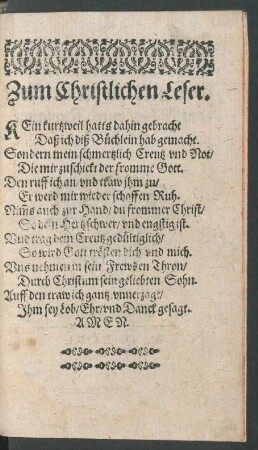 Zum Christlichen Leser.
KEin kurtzweil hatts dahin gebracht
Daß ich diß Büchlein hab gemacht.
Sondern mein schmertzlich Creutz vnd Not/
Die mir zuschickt der fromme Gott.
Den ruff ich an/ vnd traw ihm zu/
Er werd mir wieder schaffen Ruh.
Nim̃s auch zur Hand/ du frommer Christ/
So dein Hertz schwer/ vnd engstig ist.
Vnd trag dein Creutz gedültiglich/
So wird Gott trösten dich vnd mich.
Vns nehmen in sein Frewden Thron/
Durch Christum sein geliebten Sohn.
Auff den traw ich gantz vnuerzagt/
Ihm sey Lob/ Ehr/ vnd Danck gesagt.
AMEN.